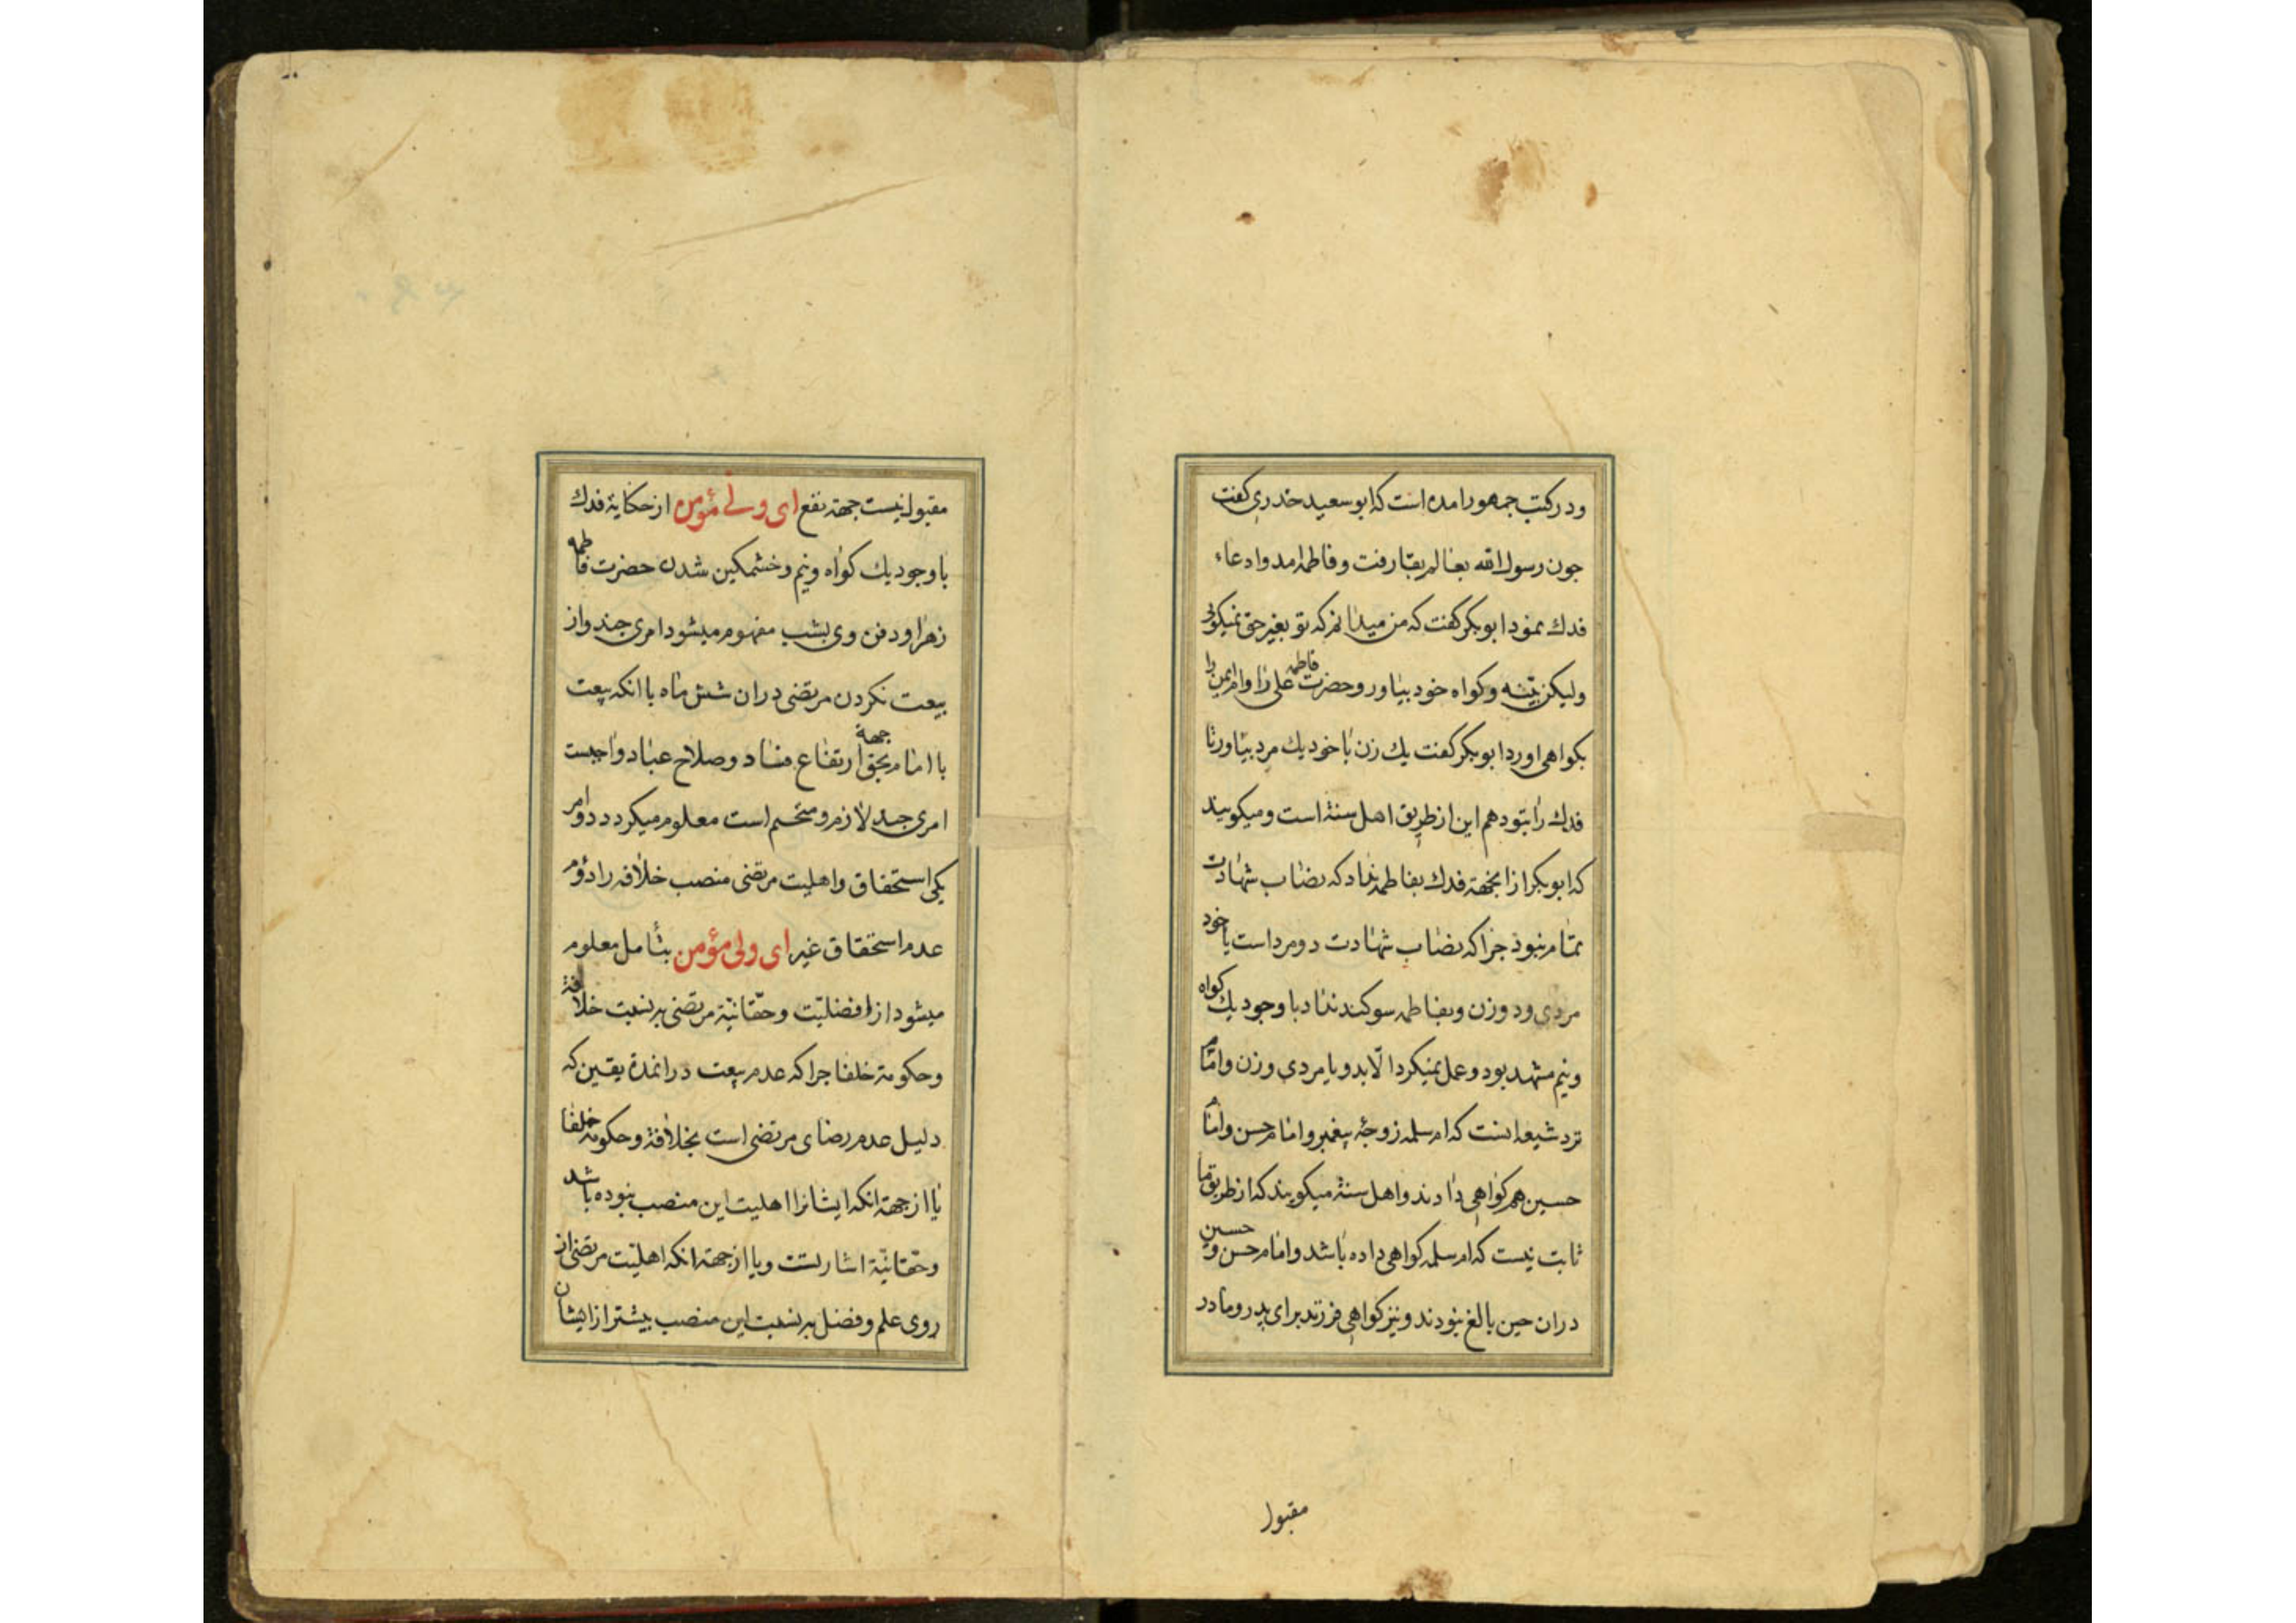 ودر کتب جمهور امده است که ابو سعید خدری کفت
جون رسول الله بعالم بقا رفت و فاطمه امد وادعاء
فدك نمود ابوبکر کفت که من میدانم که تو بغیر حق نمیکویی
ولیکن بینه وکواه خود بیاور وحضرت فاطمه علی را وام ایمن را
بکواهی اورد ابوبکر کفت یك زن با خود یك مرد بیاور تا
فدك را بتو دهم این از طریق اهل سنة است و میکویند
که ابوبکر از انجهة فدك بفاطمه نداد که نصاب شهادت
تمام نبود جرا که نصاب شهادت دو مرد است یا خود
مردی ودو زن وبفاطمه سوکند نداد با وجود یك کواه
ونیم مشهد بود وعمل نمیکرد الا بدو یا مردی وزن واما
نزد شیعه انست که ام سلمه زوجهٔ پیغمبر وامام حسن وامام
حسین هم کواهی دادند واهل سنة میکویند که از طریق ما
ثابت نیست که ام سلمه کواهی داده باشد وامام حسن وحسین
دران حین بالغ نبودند ونیز کواهی فرزند برای پدر ومادر
مقبول
مقبول نیست جهة نفع ای ولی مؤمن از حکایة فدك
با وجود یك کواه ونیم وخشمکین شدن حضرت فاطمه
زهرا ودفن وی بشب مفهوم میشود امری جند واز
بیعت نکردن مرتضی دران شش ماه با انکه بیعت
با امام بحق جهة ارتفاع فساد وصلاح عباد واجبست
امری جند لازم ومتحتم است معلوم میکردد دو امر
یکی استحقاق واهلیت مرتضی منصب خلافه را دؤم
عدم استحقاق غیر ای ولی مؤمن بتأمل معلوم
میشود از افضلیت وحقانیة مرتضی بر نسبت خلافة
وحکومة خلفا جرا که عدم بیعت درانمدة یقین که
دلیل عدم رضای مرتضی است بخلافة وحکومة خلفا
یا از جهة انکه ایشانرا اهلیت این منصب نبوده باشد
وحقانیة اشارتست ویا از جهة انکه اهلیت مرتضی از
روی علم وفضل بر نسبت این منصب بیشتر از ایشان